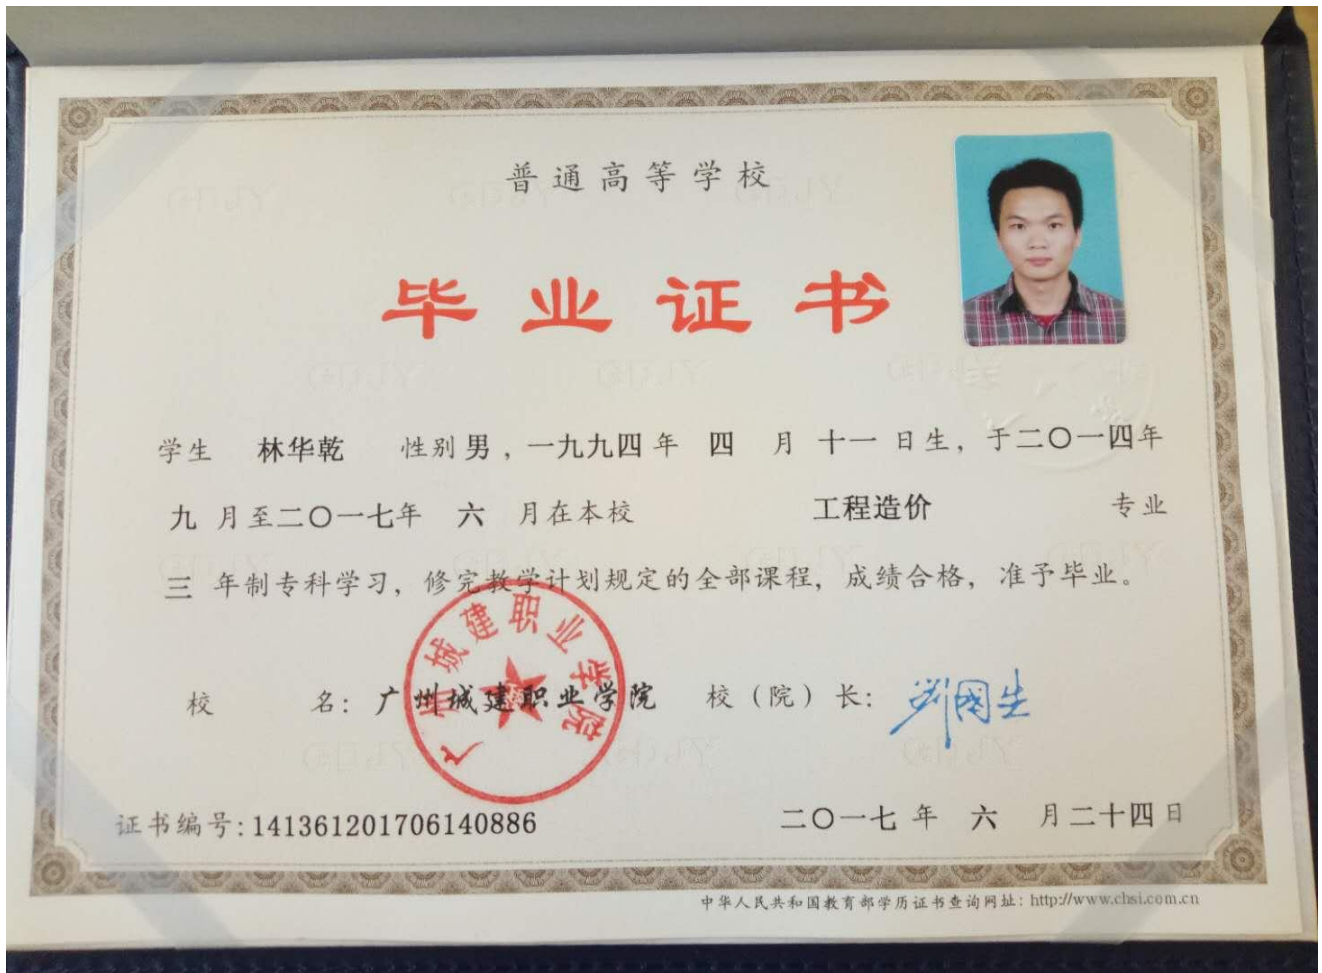 普通高等学校
毕业证书
学生 林华乾 性别 男，一九九四 年 四 月 十一 日生，于二〇一四年
九 月至二〇一七年 六 月在本校 工程造价 专业
三 年制专科学习，修完教学计划规定的全部课程，成绩合格，准予毕业。
广州城建职业学院
校 名：广州城建职业学院 校（院）长：
证书编号:141361201706140886 二〇一七 年 六 月二十四日
中华人民共和国教育部学历证书查询网址：http://www.chsi.com.cn